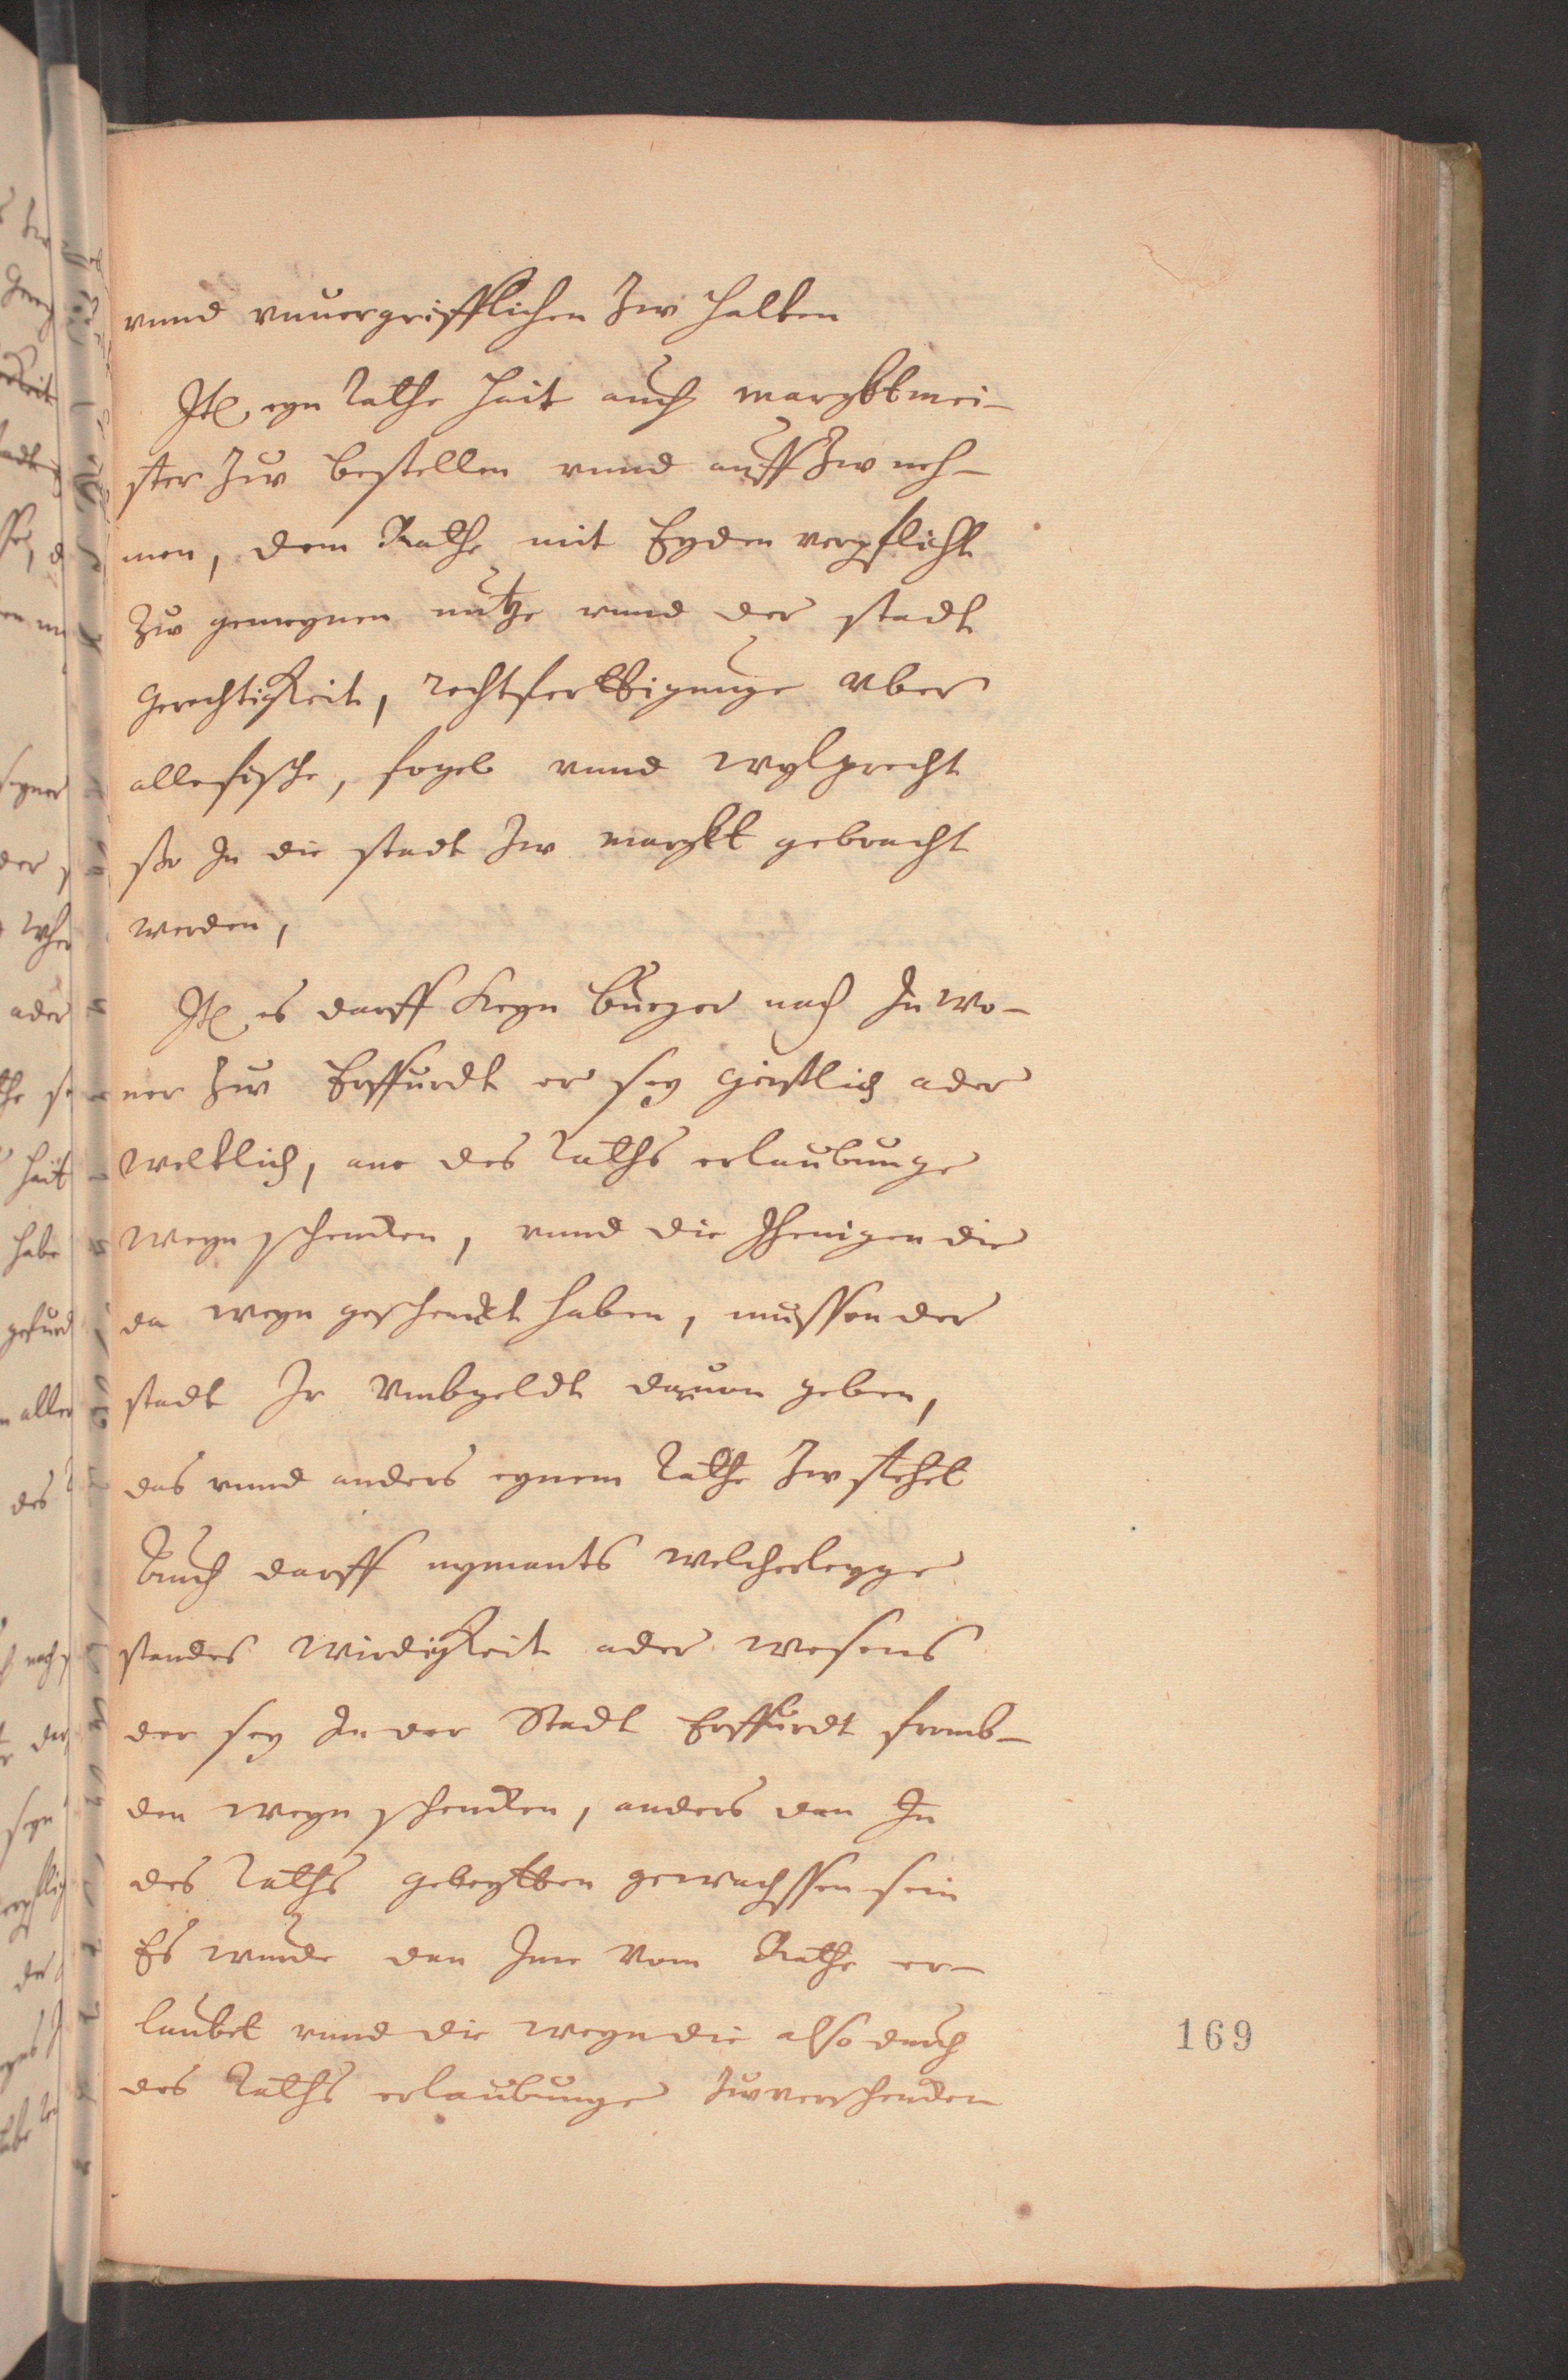 vnnd vnuergreifflichen Zw halten
Jtem eyn Rathe hait auch margktmei-
ster Zuv bestellen vnnd auff Zw neh-
men, dem Rathe mit Eyden verpflicht
Zw gemeynen nutze vnnd der stadt
gerechtigkeit, rechtferttigunge vber
alle fische, fogel vnnd wylprecht
so In die stadt Zw margkt gebracht
werden,
Jtem es darff keyn burger nach Inwo-
ner Zuv Erffurdt er sey geistlich ader
weltlich, ane des Raths erlaubunge
weyn schencken, vnnd die Jhenigen die
da weyn geschenckt haben, mussen der
stadt Jr Vmbgeldt dauon geben,
das vnnd anders eynem Rathe Zw stehet
Auch darff nymants welcherleyge
standes wirdigkeit ader wesens
der sey In der Stadt Erffurdt fremb-
den weyn schencken, anders dan In
des Raths gebeytten gewachssen sein
Es wurde dan Jme vom Rathe er-
laubet vnnd die weyn die also durch
des Raths erlaubunge Zuuerschencken
169